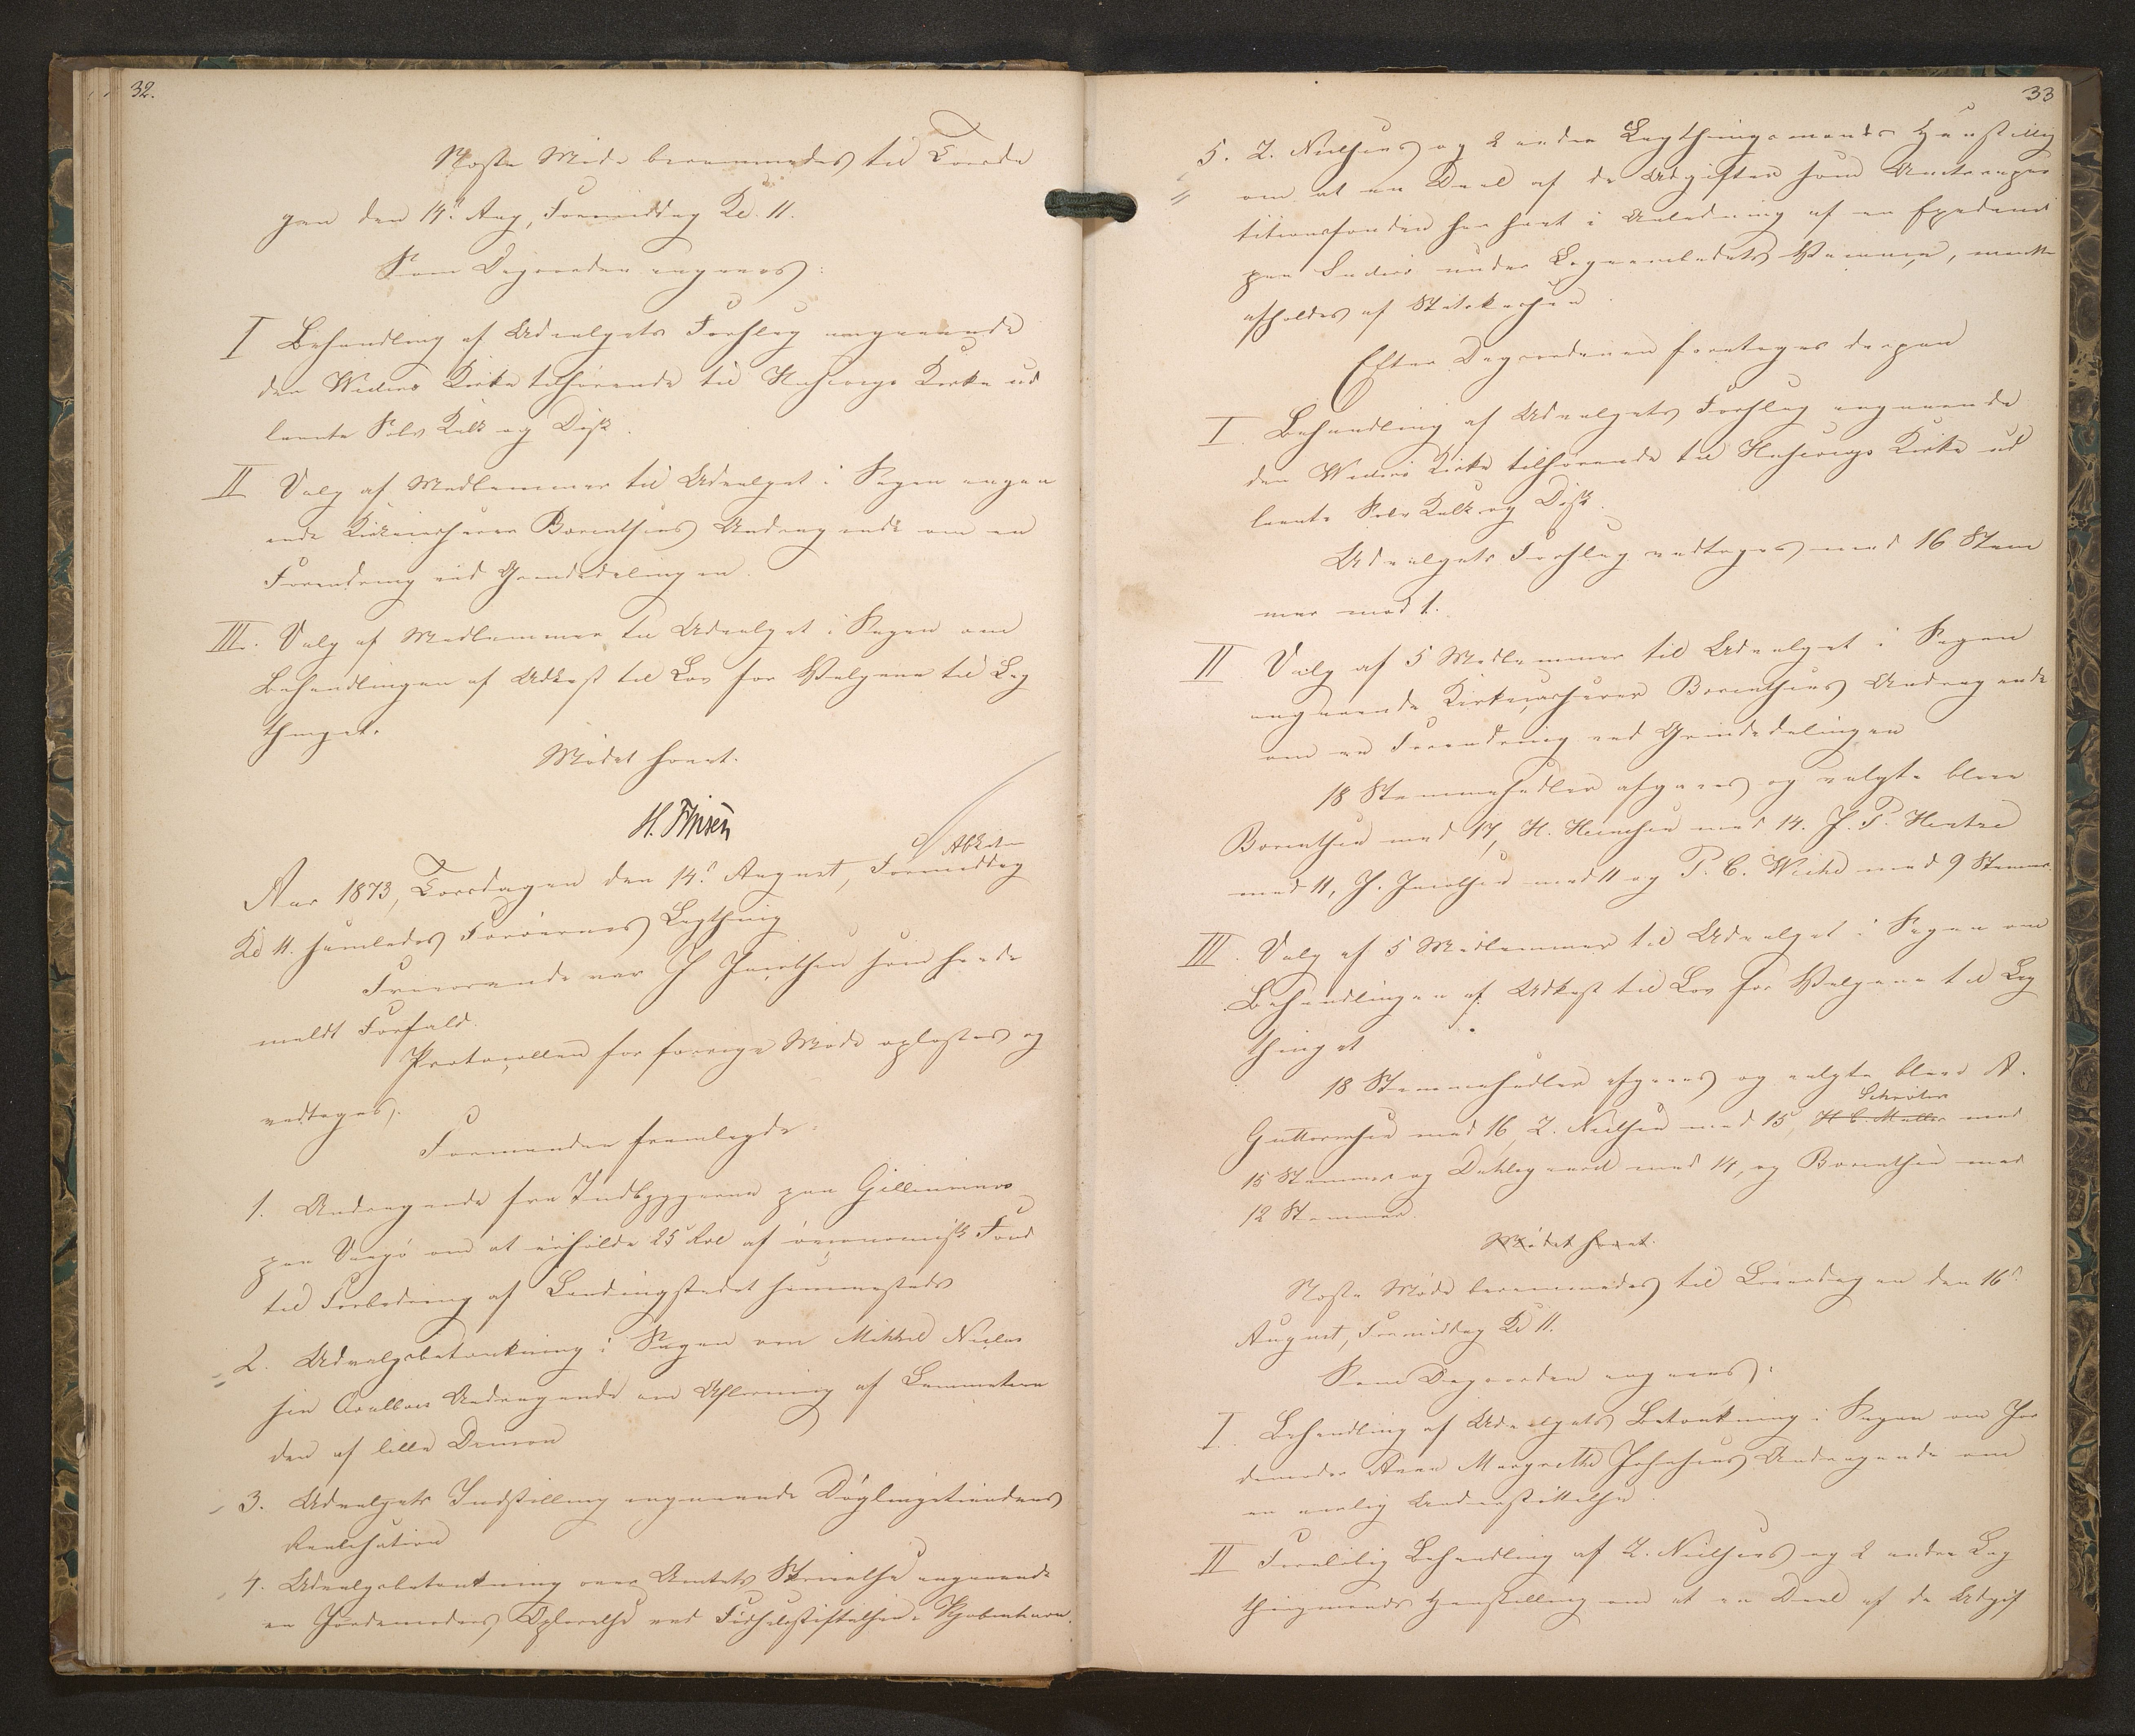 32.
Næste Møde berammedes til Torsda
gen den 14d Aug, Formiddag Kl. 11.
Som Dagsorden angaves:
I Behandling af Udvalgets Forslag angaaende
den Kirke tilhørende til Husevigs Kirke ud
laante Sølv Kalk og Disk.
II Valg af Medlemmer til Udvalget i Sagen angaa
ende Kirkeværger Borenthins Andragende om en
Forandring ved Grindedelingen.
III. Valg af Medlemmer til Udvalget i Sagen om
Behandlingen af Udkast til Lov for Valgene til Lag
thinget.
Mødet hævet.
H. Finsen
Aar 1873, Torsdagen den 14d August, Formiddag
Kl 11. samledes Færøernes Lagthing
Fraværende var J. Jacobsen som havde
meldt Forfald.
Protocollen for forrige Møde oplæstes og
vedtoges.
Formanden fremlagde:
1. Andragende fra Indbyggerne paa
paa Vaagø om at erholde 25 Rdl af øconomisk Fond
til Forbedring af Landingstedet sammesteds
2. Udvalgsbetænkning i Sagen om Mikkel Niclas
sen Andragende om Afløsning af
den af lille Dimon
3. Udvalgets Indstilling angaaende Døglingetiendens
Realisation
4. Udvalgsbetænkning over Amtets Skrivelse angaaende
en Jordemoders Oplærelse ved Fødselsstiftelsen i Kjøbenhavn.
33
5. Z. Nielsens og 2 andre Lagthingsmænds Henstilling
om at en Deel af de Udgifter som Amtsrepar
titionsfonden har havt i Anledning af en Epedemi
paa Suderø under Lægeembedets Vacance, maatte
afholdes af Statskassen.
Efter Dagsordenen foretoges derpaa
I. Behandling af Udvalgets Forslag angaaende
den Kirke tilhørende til Husevigs Kirke ud
laante Sølv Kalk og Disk.
Udvalgets Forslag vedtoges med 16 Stem
mer mod 1.
II Valg af 5 Medlemmer til Udvalget i Sagen
angaaende Kirkeværger Borenthins Andragende
om en Forandring ved Grindedelingen
18 Stemmesedler afgaves og valgte bleve
Borenthsen med 17, H. Heinesen med 14. J. P. Hentze
med 11, J. Jacobsen med 11 og P. C. Weihe med 9 Stemmer.
III. Valg af 5 Medlemmer til Udvalget i Sagen om
Behandlingen af Udkast til Lov for Valgene til Lag
thinget
18 Stemmesedler afgaves og valgte bleve A.
Schrøter
Guttormsen med 16, Z. Nielsen med 15 H C. Müller med
15 Stemmer og Dahlsgaard med 14, og Borenthsen med
12 Stemmer
Mødet hævet.
Næste Møde berammedes til Løverdagen den 16d
August, Formiddag Kl 11.
Som Dagsorden angaves:
I. Behandling af Udvalgets Betænkning i Sagen om Jor
demoder Anna Margrethe Johnsens Andragende om
en aarlig Understøttelse.
II Foreløbig Behandling af Z. Nielsens og 2 andre Lag
thingsmænds Henstilling om at en Deel af de Udgif